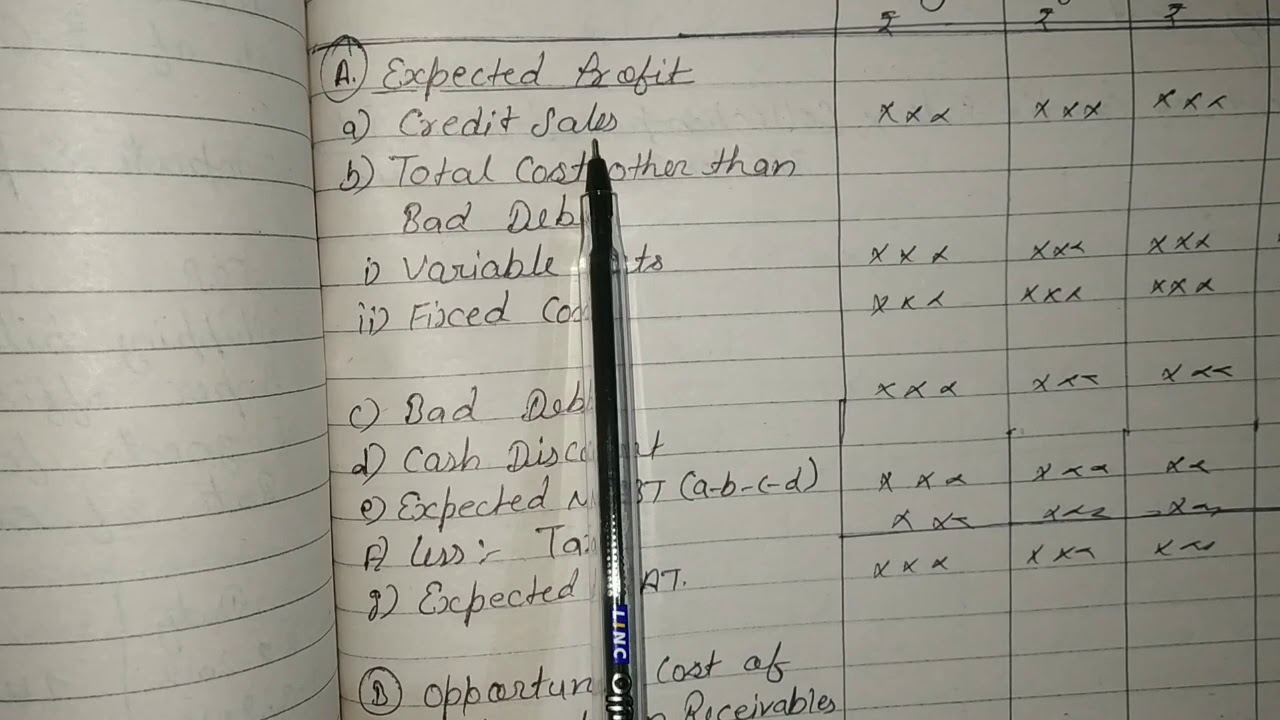 ₹ ₹ ₹
A. Expected Profit
a) Credit Sales xxx xxx xxx
b) Total Cost other than
Bad Deb
i) Variable ts xxx xxx xxx
ii) Fixed Co xxx xxx xxx
c) Bad Deb xxx xxx xxx
d) Cash Disc t
e) Expected N BT (a-b-c-d) xxx xxx xx
f) Less:- Ta xxx xxx xx
g) Expected AT. xxx xxx xx
B opportun cost of
Receivables
LINC